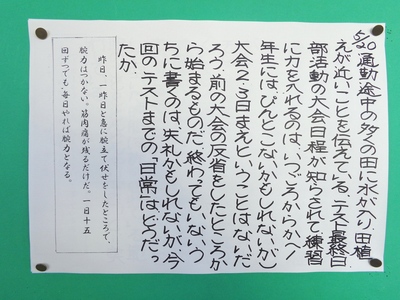 5/20 通勤途中の多くの田に水が入り、田植
えが近いことを伝えている。テスト最終日、
部活動の大会日程が知らされて、練習
に力を入れるのは、いつごろからか？(
年生には、ぴんとこないかもしれないが)
大会2、3日まえ、ということはないだ
ろう。前の大会の反省をしたところか
ら始まるものだ。終わってもいないう
ちに書くのは、失礼かもしれないが、今
回のテストまでの「日常」はどうだっ
たか。
昨日、一昨日と急に腕立て伏せをしたところで、
腕力はつかない。筋肉痛が残るだけだ。一日十五
回ずつでも、毎日やれば腕力となる。